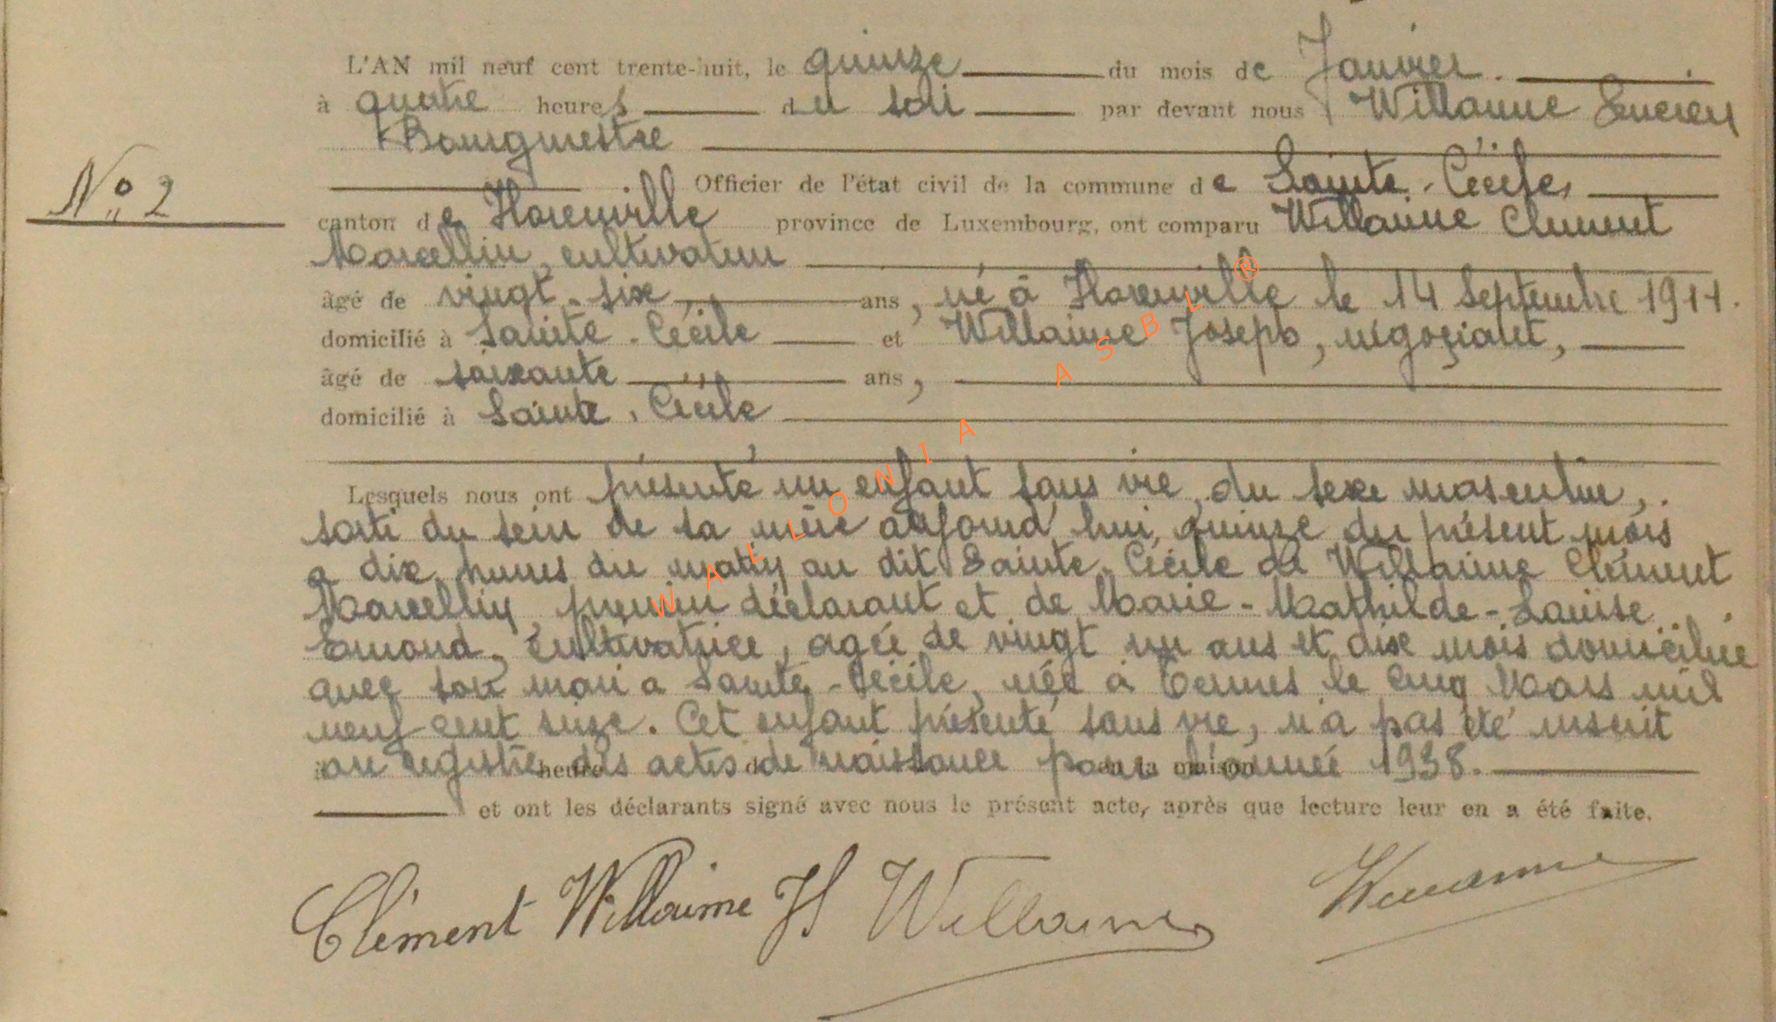 L'AN mil neuf cent trente-huit, le quinze du mois de Janvier.
à quatre heures du soir par devant nous Willaime Lucien
Bourgmestre
Officier de l'état civil de la commune de Sainte-Cécile,
N° 2
canton de Florenville province de Luxembourg, ont comparu Willaime Clément
Marcellin, cultivateur
âgé de vingt-six, ans, né à Florenville le 14 Septembre 1911.
domicilié à Sainte-Cécile et Willaime Joseph, négociant,
âgé de soixante ans,
domicilié à Sainte-Cécile
Lesquels nous ont présenté un enfant sans vie, du sexe masculin,
sorti du sein de sa mère aujourd'hui, quinze du présent mois
a dix heures du matin au dit Sainte-Cécile de Willaime Clément
Marcellin, premier déclarant et de Marie-Mathilde-Louise
Emond, cultivatrice, agée de vingt un ans et dix mois domiciliée
avec son mari a Sainte-Cécile, née à Termes le cinq Mars mil
neuf cent seize. Cet enfant présenté sans vie, n'a pas été inscrit
au registre des actes de naissance pour l'année 1938.
à heure d en la maison
et ont les déclarants signé avec nous le présent acte, après que lecture leur en a été faite.
Clément Willaime JS Willaime Willaime
WALLONIA ASBL R